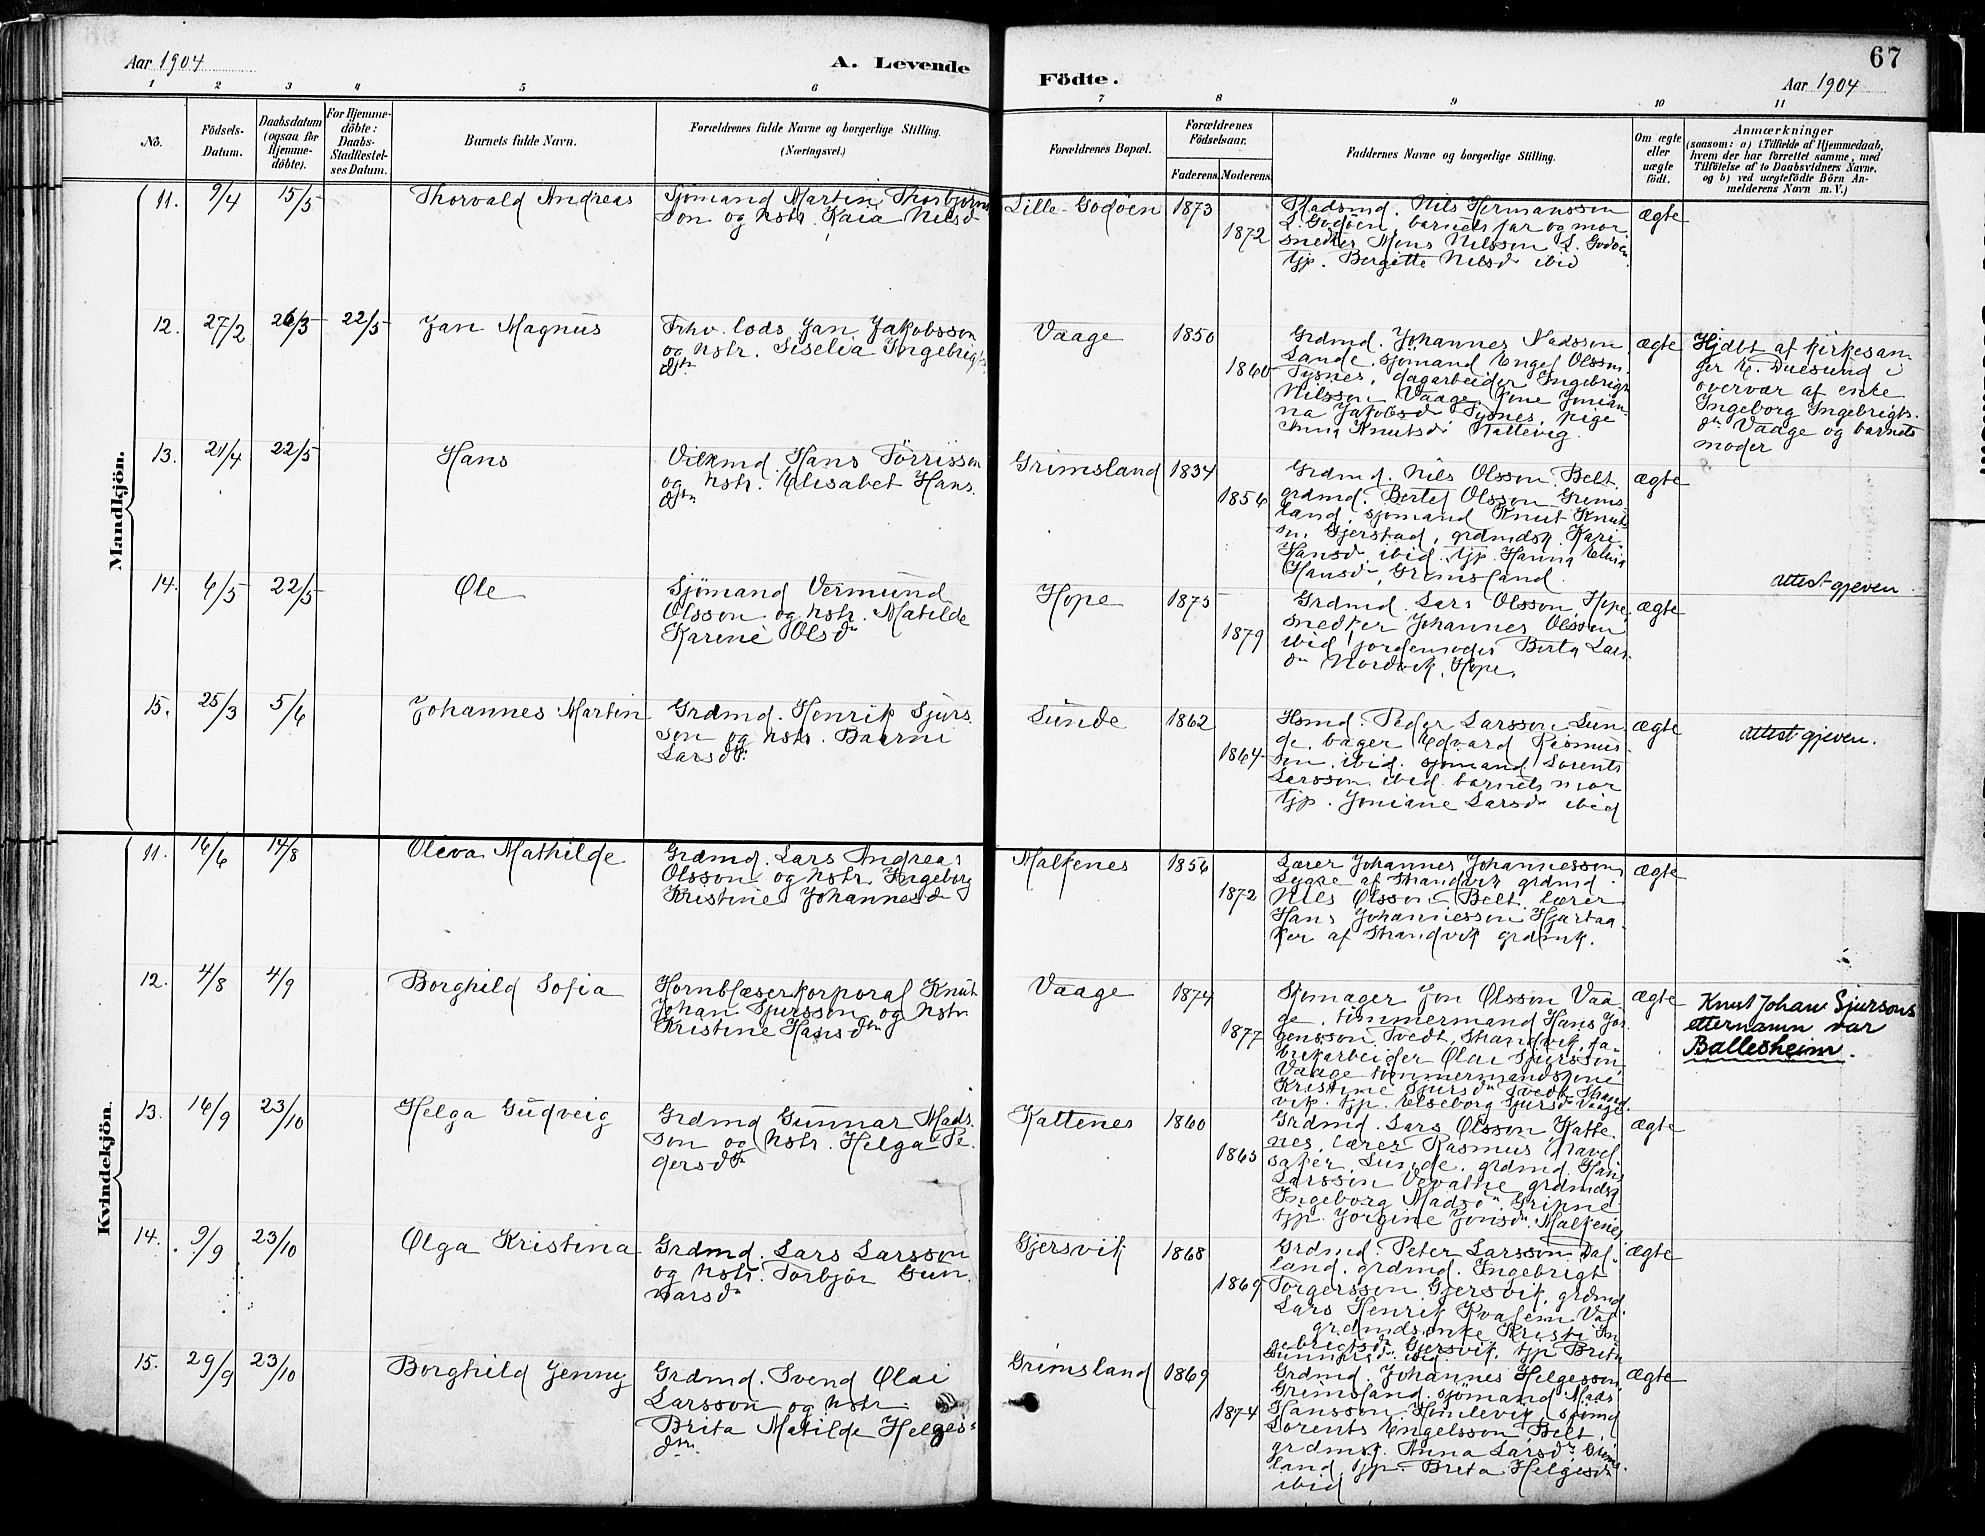 67
Aar 1904
A. Levende
Födte.
Aar 1904
1
2
3
4
5
6
7
8
9
10
11
No.
Födsels-
Datum.
Daabsdatum
(ogsaa för
Hjemme-
döbte).
For Hjemme-
döbte:
Daabs-
Stadfæstel-
ses Datum.
Barnets fulde Navn.
Forældrenes fulde Navne og borgerlige Stilling.
(Næringsvei.)
Forældrenes Bopæl.
Forældrenes
Födselsaar.
Faderens.
Moderens.
Faddernes Navne og borgerlige Stilling.
Om ægte
eller
uægte
födt.
Anmærkninger
(saasom: a) i Tilfælde af Hjemmedaab,
hvem der har forrettet samme, med
Tilföielse af to Daabsvidners Navne,
og b) ved uægtefödte Börn An-
melderens Navn m. V.)
Mandkjön.
11.
9/4
15/5
Thorvald Andreas
Sjömand Martin Thorbjörns
son og hstr. Kaia Nilsdr
Lille-Godöen
1873
1872
Pladsmd. Nils Hermansson
L. Godöen, barnets far og mor
snedker Mons Nilsson L. Godöen
tjp. Bergitte Nilsdr ibid
ægte
12.
27/2
26/3
22/5
Jan Magnus
Frhv. lods Jan Jakobsson
og hstr. Siselia Ingebrigts
dtr
Vaage
1850
1860
Grdmd. Johannes Madsson
Lande, sjömand Engel Olsson
Tysnes, dagarbeider Ingebrigt
Nilsson Vaage, kone Jonian-
na Jakobsdr Tysnes, pige
Anna Knutsdr Hattevig.
ægte
Hjdbt af kirkesan-
ger E. Duesund i
overvær af enke
Ingeborg Ingebrigts-
dr Vaage og barnets
moder
13.
21/4
22/5
Hans
Vilkmd. Hans Törrisson
og hstr. Elisabet Hans-
dtr
Grimsland
1834
1856
Grdmd. Nils Olsson Belt
grdmd. Bertel Olsson Grims
land, sjömand Knut Knut-
sn. Gjerstad, grdmdsk. Kari
Hansdr ibid, tjp. Hanna Elina
Hansdr, Grimsland.
ægte
14.
6/5
22/5
Ole
Sjömand Vermund
Olsson og hstr. Matilde
Karine Olsdr
Hope
1875
1879
Grdmd. Lars Olsson Hope,
snedker Johannes Olsson
ibid, jordemoder Berta Lars-
dr Nordvik, Hope.
ægte
Attest gjeven.
15.
25/3
5/6
Johannes Martin
Grdmd. Henrik Sjurs-
son og hstr. Baarni
Larsdr.
Lunde
1862
1864
Hsmd. Peder Larsson Lun
de, bager Edvard Rasmus-
son ibid. sjömand Lorents
Larsson ibid. barnets mor
tjp. Joniane Larsdr ibid
ægte
Attest gjeven.
Kvindekjön.
11.
16/6
14/8
Oleva Mathilde
Grdmd. Lars Andreas
Olsson og hstr. Ingeborg
Kristine Johannesdr
Malkenes
1856
1872
Lærer Johannes Johannesson
Lygre af Strandvik, grdmd.
Nils Olsson Belt, lærer
Hans Johannesson Hjartaa-
ker af Strandvik grdmk.
ægte
12.
4/8
4/9
Borghild Sofia
Hornblæserkorporal Knut
Johan Sjursson og hstr
Kristine Hansdtr
Vaage
1874
1877
Skomager Jon Olsson Vaa-
ge, timmermand Hans Jör-
gensson Tvedt, Strandvik, fa-
brikarbeider Olai Sjursson
Vaage timmermandskone
Kristine Sjursdr Tvedt Strand-
vik. tjp. Elseborg Sjursdr Vaage
ægte
Knut Johan Sjursons
etternamn var
Ballesheim.
13.
16/9
23/10
Helga Gudveig
Grdmd Gunnar Mads
son og hstr. Helga Pe-
dersdtr
Kattenes
1860
1865
Grdmd. Lars Olsson Katte-
nes, lærer Rasmus Navel
saker, Lunde, grdmd. Hans
Larsson Vevatne grdmdsk
Ingeborg Madsdr Gripne
tjp. Jorgine Jonsdr. Malkenes
ægte
14.
9/9
23/10
Olga Kristina
Grdmd. Lars Larsson
og hstr. Torbjör Gun-
narsdr
Gjersvik
1868
1869
Grdmd. Peter Larsson Dal-
land, grdmd. Ingebrigt
Torgersson Gjersvik, grdmd.
Lars Henrik Kvalem Val
grdmdsenke Kristi In-
gebrigtsdr Gjersvik, tjp Brita
Gunnarsdr. ibid.
ægte
15.
29/9
23/10
Borghild Jenny
Grdmd. Svend Olai
Larsson og hstr.
Brita Matilde Helges-
dtr.
Grimsland
1869
1874
Grdmd. Johannes Helgesson
Grimsland. sjömand Mads
Hansson Humlevik, sjömd
Lorents Engelsson Belt,
grdmsk. Anna Larsdr Grims-
land. tjp. Brita Helgesdr
ibid
ægte